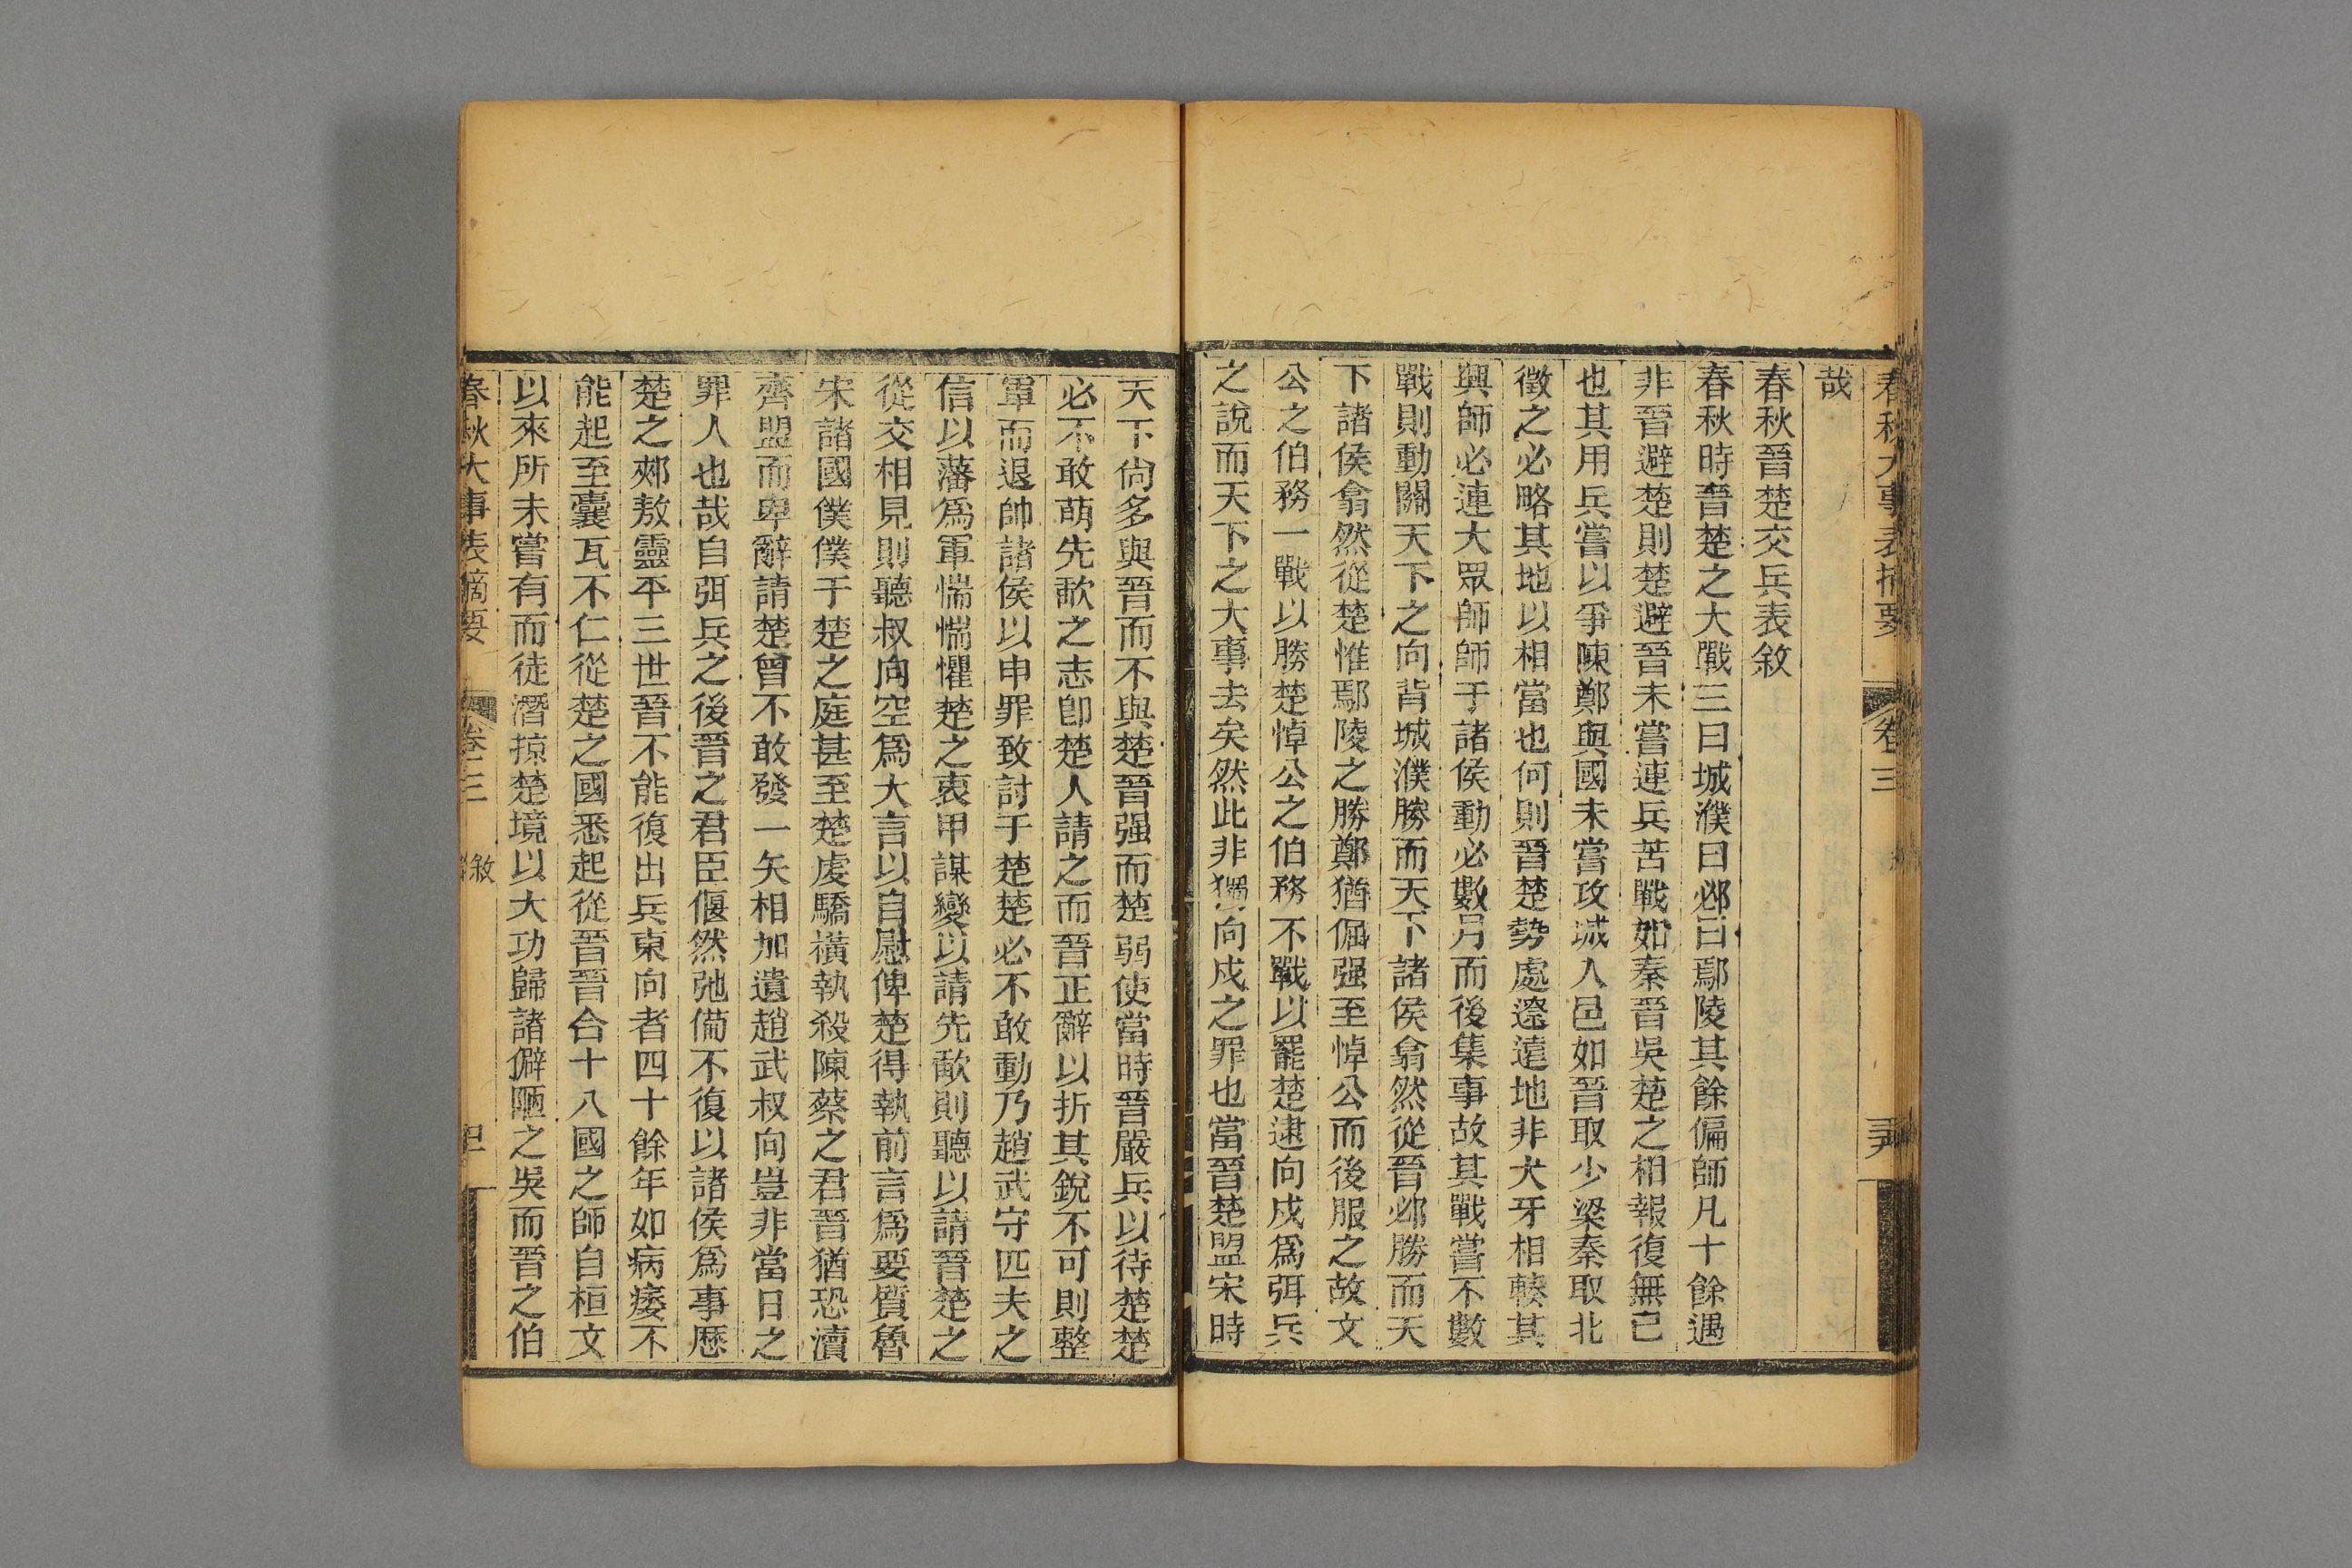 春秋大事表摘要 卷三
哉
春秋晉楚交兵表敘
春秋時晉楚之大戰三曰城濮曰邲曰鄢陵其餘偏師凡十餘遇
非晉避楚則楚避晉未嘗連兵苦戰如秦晉吳楚之相報復無已
也其用兵嘗以爭陳鄭與國未嘗攻城入邑如晉取少梁秦取北
徵之必略其地以相當也何則晉楚勢處遼遠地非犬牙相轃其
興師必連大眾師師于諸侯動必數月而後集事故其戰嘗不數
戰則動關天下之向背城濮勝而天下諸侯翕然從晉邲勝而天
下諸侯翕然從楚惟鄢陵之勝鄭猶倔强至悼公而後服之故文
公之伯務一戰以勝楚悼公之伯務不戰以罷楚逮向戌爲弭兵
之說而天下之大事去矣然此非獨向戌之罪也當晉楚盟宋時
天下尙多與晉而不與楚晉强而楚弱使當時晉嚴兵以待楚楚
必不敢萌先歃之志卽楚人請之而晉正辭以折其銳不可則整
軍而退帥諸侯以申罪致討于楚楚必不敢動乃趙武守匹夫之
信以藩爲軍惴惴懼楚之衷甲謀變以請先歃則聽以請晉楚之
從交相見則聽叔向空爲大言以自慰俾楚得執前言爲要質魯
宋諸國僕僕于楚之庭甚至楚虔驕橫執殺陳蔡之君晉猶恐瀆
齊盟而卑辭請楚曾不敢發一矢相加遺趙武叔向豈非當日之
罪人也哉自弭兵之後晉之君臣偃然弛備不復以諸侯爲事歷
楚之郟敖靈平三世晉不能復出兵東向者四十餘年如病痿不
能起至囊瓦不仁從楚之國悉起從晉晉合十八國之師自桓文
以來所未嘗有而徒潛掠楚境以大功歸諸僻陋之吳而晉之伯
春秋大事表摘要 卷三 敘